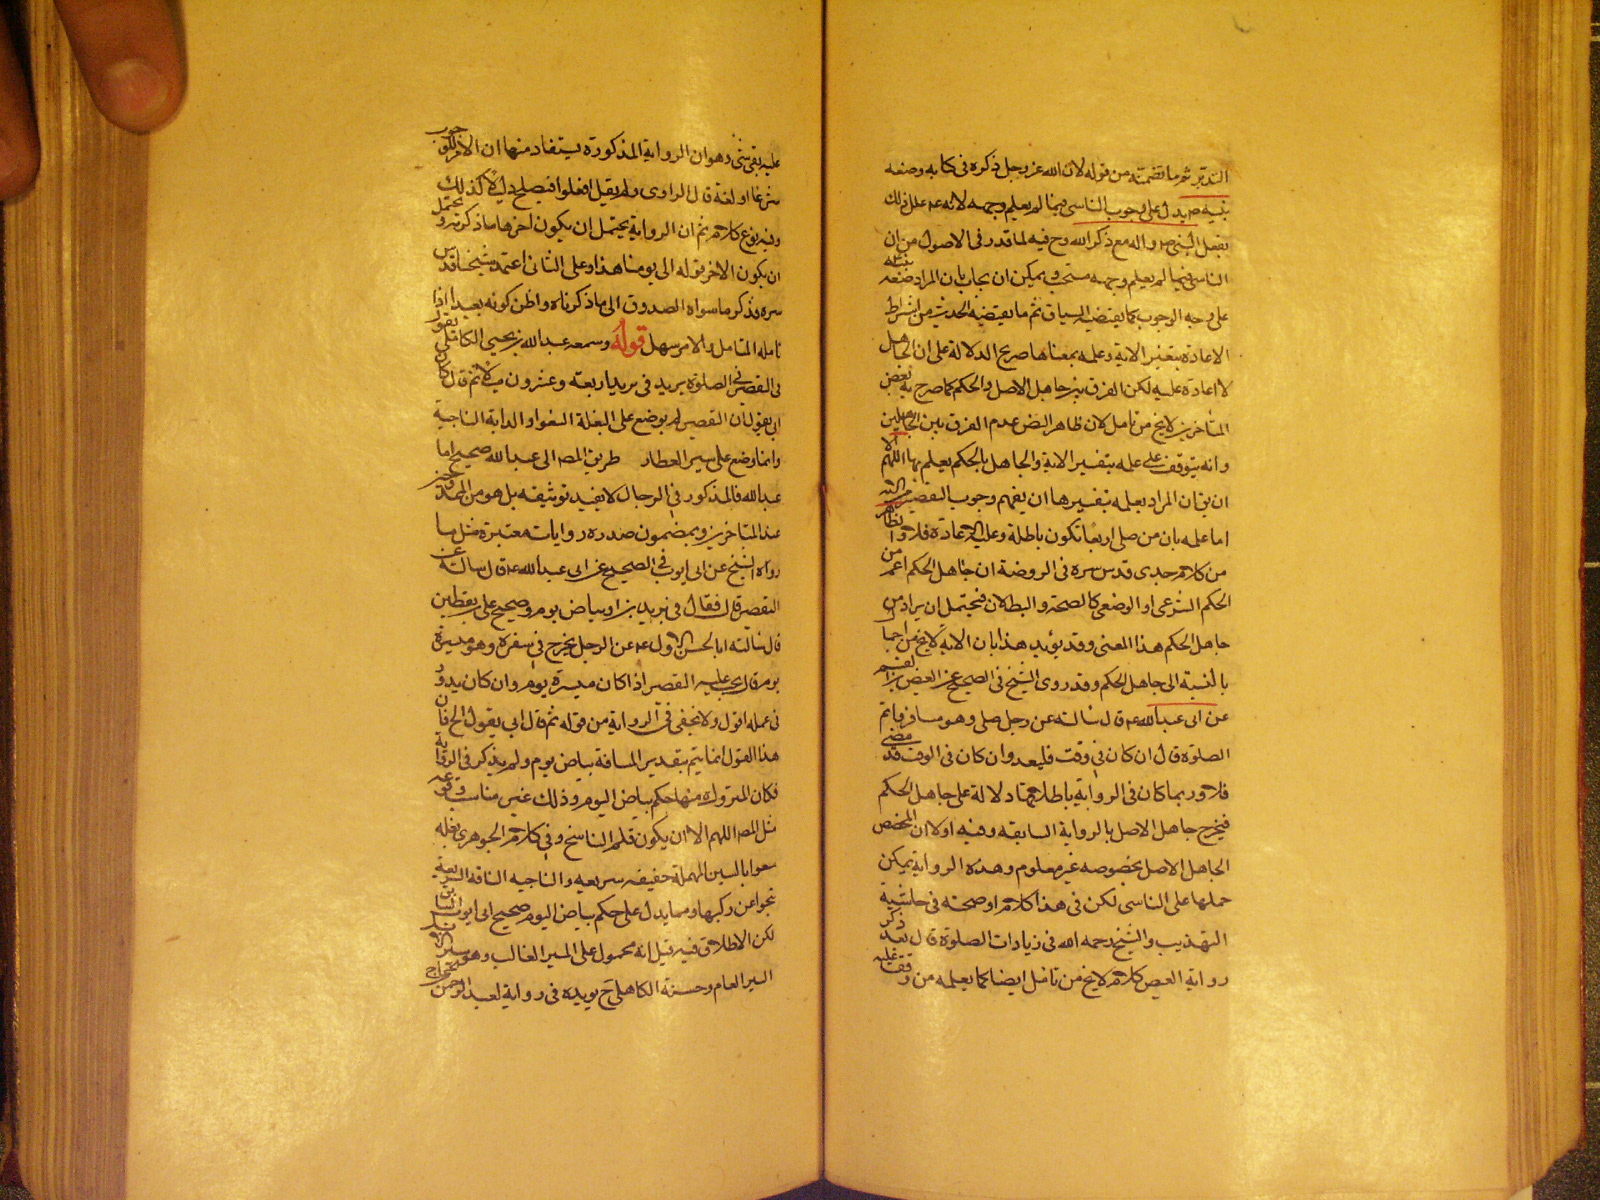 التدبر ثم ما تضمنه من قوله لان الله عز وجل ذكره في كتابه وصنعه
نبيه ص يدل على وجوب التاسي فيما لم يعلم وجهه لانه ع علل ذلك
بفعل النبي ص واله مع ذكر الله وح فيه لما قدر في الاصول من ان
التاسي فيما لم يعلم وجهه مستحب ويمكن ان يجاب بان المراد صنعه نبيه
على وجه الوجوب كما يقتضيه السياق ثم ما يقتضيه الحديث من اشتراط
الاعادة بتفسير الاية وعلمه بمعناها صريح الدلالة على ان الجاهل
لا اعادة عليه لكن الفرق بين جاهل الاصل والحكم كما صرح به بعض
المتاخرين لا يخ من تامل لان ظاهر النص عدم الفرق بين الجاهلين
وانه يتوقف على علمه بتفسير الاية والجاهل بالحكم يعلم بها اللهم الا
ان يق ان المراد بعلمه بتفسيرها ان يفهم وجوب التقصير من الاية
اما علمه بان من صلى اربعا تكون باطلة وعليه الاعادة فلا والظاهر
من كلام جدي قدس سره في الروضة ان جاهل الحكم اعم من
الحكم الشرعي او الوضعي كالصحة والبطلان فيحتمل ان يراد من
جاهل الحكم هذا المعنى وقد يؤيد هذا بان الاية لا يخ من اجما
بالنسبة الى جاهل الحكم وقد روى الشيخ في الصحيح عن العيص بن القسم
عن ابي عبد الله ع قال سالته عن رجل صلى وهو مسافر فاتم
الصلوة قال ان كان في وقت فليعد وان كان في الوقت قد مضى
فلا وربما كان في الرواية باطلاقها دلالة على جاهل الحكم
فيخرج جاهل الاصل بالرواية السابقة وفيه اولا ان المخصص
الجاهل الاصل بخصوصه غير معلوم وهذه الرواية يمكن
حملها على الناسي لكن في هذا كلام اوضحته في حاشية
التهذيب والشيخ رحمه الله في زيادات الصلوة قال بعد ذكر
رواية العيص كلام لا يخ من تامل ايضا كما يعلمه من وقف عليه
عليه بقي شي وهو ان الرواية المذكورة يستفاد منها ان الامر للوجوب
شرعا او لغة قال الراوي ولم يقل افعلوا فيصلح دليلا كذلك
وفيه نوع كلام ثم ان الرواية يحتمل ان يكون اخرها ما ذكرته ويحتمل
ان يكون الاخر قوله الى يومنا هذا وعلى الثاني اعتمد شيخنا قدس
سره فذكر ما سواه الصدوق الى ما ذكرناه واظن كونه بعيدا اذا
تامله المتامل والامر سهل قوله وسمعه عبد الله بن يحيى الكاهلي يقول
في التقصير في الصلوة بريد في بريد اربعة وعشرون ميلا ثم قال كان
ابي يقول ان التقصير لم يوضع على البغلة السفواء والدابة الناجية
وانما وضع على سير العطار طريق المص الى عبد الله صحيح اما
عبد الله فالمذكور في الرجال لا يفيد توثيقه بل هو من الممدوحين
عند المتاخرين وبمضمون صدره روايات معتبرة مثل ما
رواه الشيخ عن ابي ايوب في الصحيح عن ابي عبد الله ع قال سالته عن
التقصير قال فقال في بريدين او بياض يوم وصحيح علي بن يقطين
قال سالت ابا الحسن الاول ع عن الرجل يخرج في سفره وهو مسيرة
يوم قال يجب عليه التقصير اذا كان مسيرة يوم وان كان يدور
في عمله اقول ولا يخفى في الرواية من قوله ثم قال ابي يقول الخ فان
هذا القول انما يتم بتقدير المسافة بياض يوم ولم يذكر في الرواية
فكان المتروك منها حكم بياض اليوم وذلك غير مناسب وقوعه
مثل المص اللهم الا ان يكون قلم الناسخ وفي كلام الجوهري بغلة
سفوا بالسين المهملة خفيفة سريعة والناجية الناقة السريعة
تنجوا عن ركبها ومما يدل على حكم بياض اليوم صحيح ابي ايوب السابق
لكن الاطلاق فيه قيل انه محمول على السير الغالب وهو سير الابل
السير العام وحسنة الكاهلي ح يويده في رواية لعبد الرحمن بن الحجاج